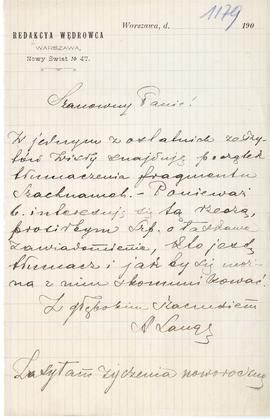 1179
REDAKCYA WĘDROWCA
WARSZAWA,
Nowy Świat № 47.
Warszawa, d. 190
Szanowny Panie!
W jednym z ostatnich zeszy-
tów Wisły znajduję początek
tłumaczenia fragmentu
Szachnameh. – Ponieważ
b. interesuję się tą rzeczą,
prosiłbym o łaskawe
zawiadomienie, kto jest
tłumacz i jak by się moż-
na z nim skomunikować.
Z głębokim szacunkiem
A Lange
Zasyłam życzenia noworoczne